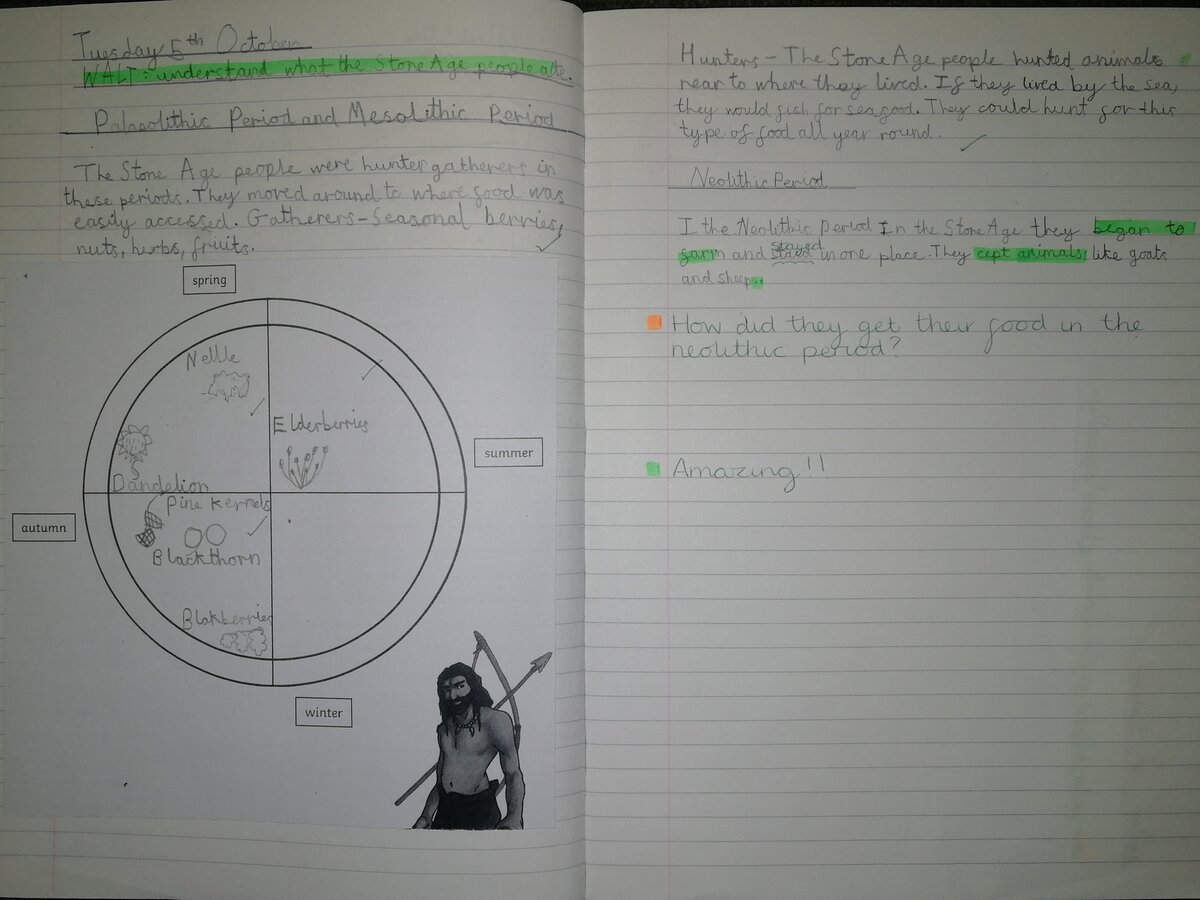 Tuesday 5th October
WALT: understand what the Stone Age people ate.
Palaeolithic Period and Mesolithic Period
The Stone Age people were hunter gatherers in
these periods. They moved around to where food was
easily accessed. Gatherers - Seasonal berries,
nuts, herbs, fruits.
spring
Nettle
Elderberries
summer
Dandelion
Pine Kernels
autumn
Blackthorn
Blakberries
winter
Hunters - The Stone Age people hunted animals
near to where they lived. If they lived by the sea,
they would fish for seafood. They could hunt for this
type of food all year round.
Neolithic Period
I the Neolithic Period In the Stone Age they began to
farm and stayed staed in one place. They cept animals like goats
and sheep..
How did they get their food in the
neolithic period?
Amazing!!